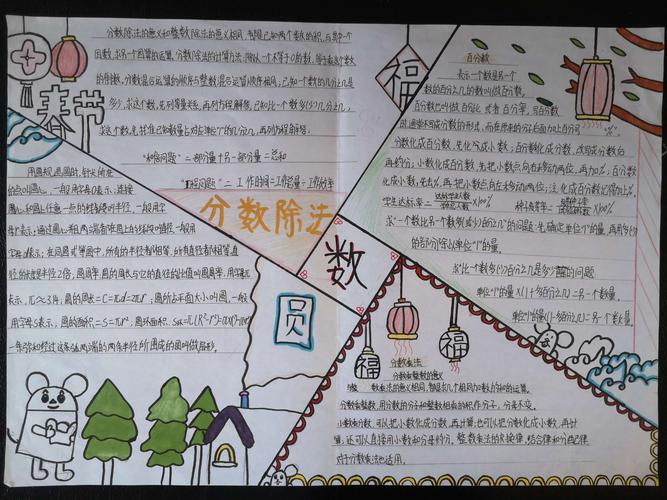 春节
分数除法的意义和整数除法的意义相同,都是已知两个数的积,与其中一个
因数,求另一个因数的运算,分数除法的计算方法:除以一个不等于0的数,等于乘这个数
的倒数,分数混合运算的顺序与整数混合运算顺序相同,已知一个数的几分之几是
多少,求这个数,先列等量关系,再列方程解答,已知比一个数多(少)几分之几,
求这个数,先找准已知数量占对应单位"1"的几分之几,再列方程解答。
"和倍问题"=一部分量+另一部分量=总和
"工程问题"= 工作时间=工作总量÷工作效率
分数除法
福
百分数
表示一个数是另一个
数的百分之几的数叫做百分数。
百分数也叫做百分比或者百分率,写百分数
时,通常不写成分数的形式,而在原来的分子后面加上百分号"%"。
分数化成百分数,先化为成小数;百分数化成分数,改写成分数后
再约分;小数化成百分数,先把小数点向右移动两位,再加%;百分数
化成小数,先去%,再把小数点向左移动两位;
学生达标率= ×100%
×100%
求一个数比另一个数多(或少)的百分之几
求比一个数多(少)百分之几是多少的问题
单位"1"的量×(1+多百分之几)=另一个数量
单位"1"的量×(1-少百分之几)=另一个数量。
用圆规画圆时,针尖所在
的点叫圆心,一般用字母O表示,连接
圆心和圆上任意一点的线段叫半径,一般用字
母r表示;通过圆心和两端都在圆上的线段叫直径,一般用
字母d表示;在同圆或等圆中,所有的半径都相等,所有直径都相等,直
径的长度是半径2倍,圆周率:圆的周长与它的直径的比值叫圆周率,用字母π
表示,π≈3.14;圆的周长=C=πd=2πr;圆所占平面大小叫圆,一般
用字母S表示;圆的面积=S=πr²;圆环面积:
数
圆
福
福
分数乘法
分数乘整数的意义
与整数乘法的意义相同,都是求几个相同加数的和的运算。
分数乘整数,用分数的分子和整数相乘的积作分子,分母不变。
小数乘分数,可以把小数化成分数,再计算;也可以把分数化成小数,再计
算,还可以直接用小数和分母约分。整数乘法的交换律、结合律和分配律
对于分数乘法也适用。